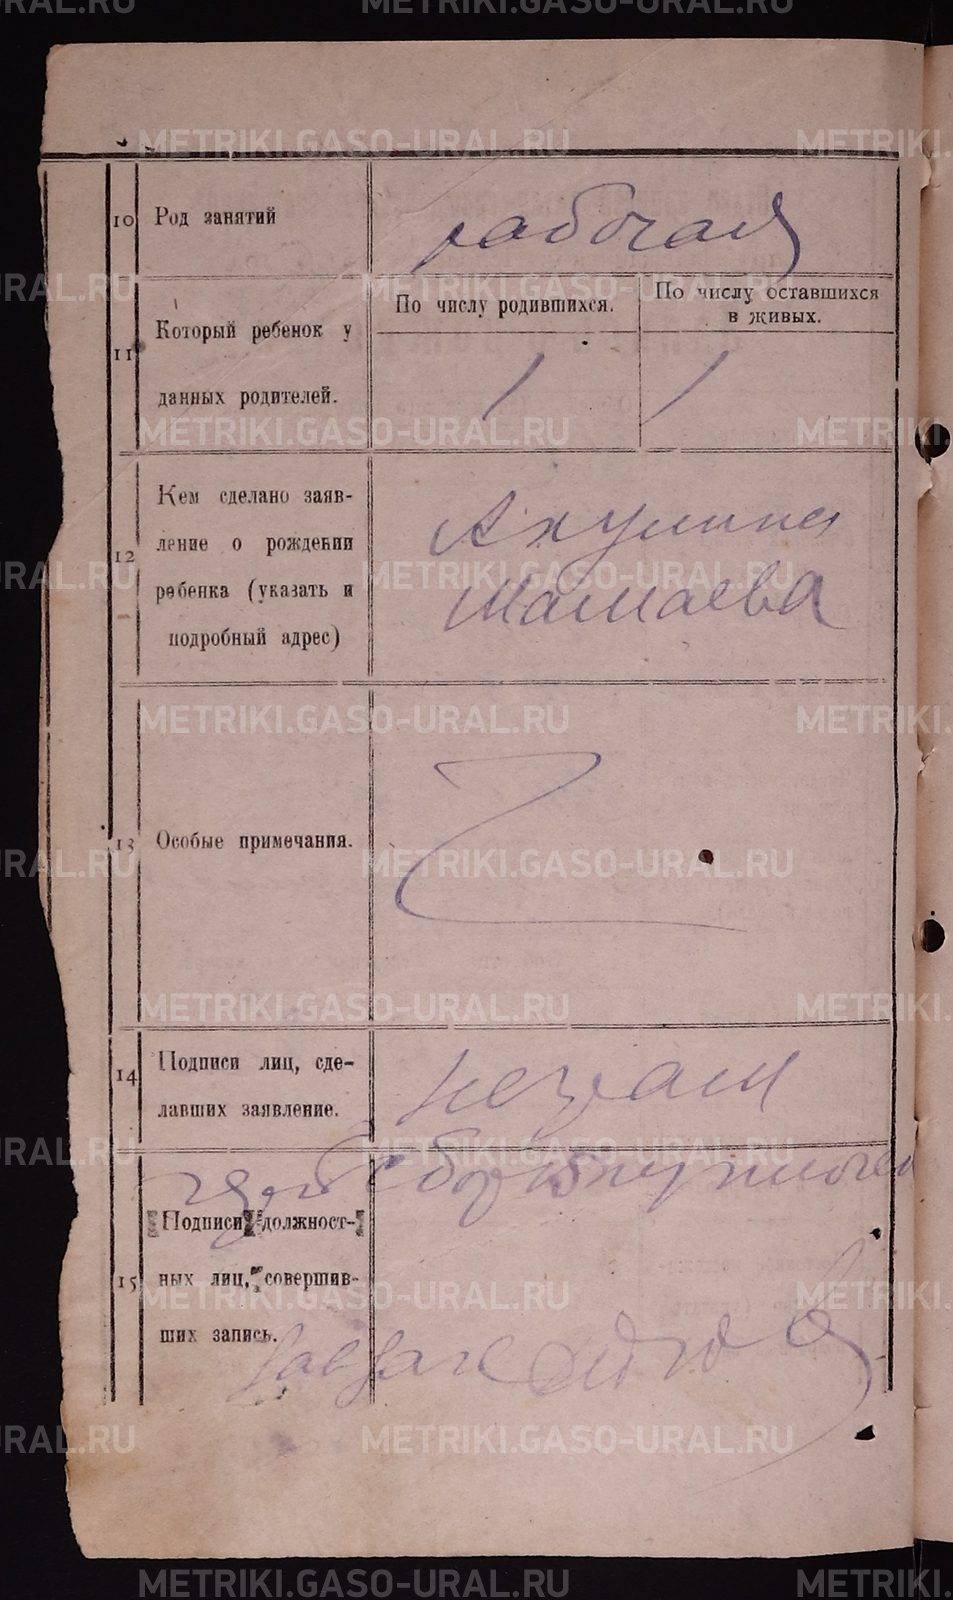 METRIKI.GASO-URAL.RU
10 Род занятий
рабочая
11 Который ребенок у
данных родителей.
По числу родившихся.
По числу оставшихся
в живых.
1
1
12 Кем сделано заяв-
ление о рождении
ребенка (указать и
подробный адрес)
Акулина
Шамаева
13 Особые примечания.
14 Подписи лиц, сде-
лавших заявление.
15 Подписи должност-
ных лиц, совершив-
ших запись.